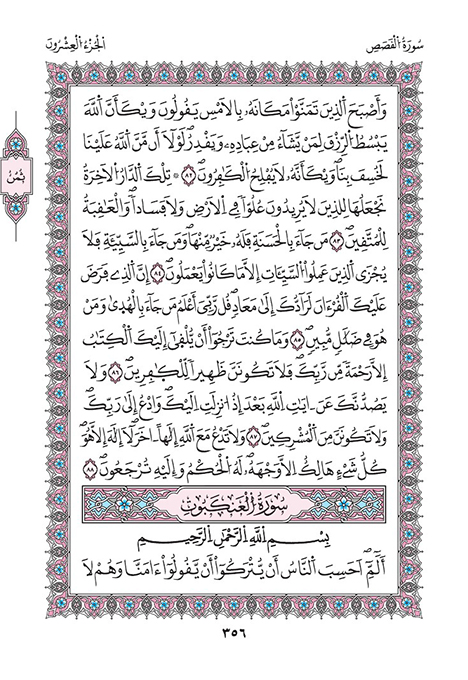 سُورَةُ الْقَصَصِ
الْجُزْءُ الْعِشْرُونَ
وَأَصْبَحَ اَ۬لذِينَ تَمَنَّوْاْ مَكَانَهُۥ بِالَامْسِ يَقُولُونَ وَيْكَأَنَّ اَ۬للَّهَ
يَبْسُطُ اُ۬لرِّزْقَ لِمَنْ يَّشَآءُ مِنْ عِبَادِهِۦ وَيَقْدِرُ لَوْلَآ أَن مَّنَّ اَ۬للَّهُ عَلَيْنَا
لَخُسِفَ بِنَا وَيْكَأَنَّهُۥ لَا يُفْلِحُ اُ۬لْكٰفِرُونَ ٨٢ ۞ تِلْكَ اَ۬لدَّارُ اُ۬لَاخِرَةُ
ثُمُنُ
نَجْعَلُهَا لِلذِينَ لَا يُرِيدُونَ عُلُوّاٗ فِے اِ۬لَارْضِ وَلَا فَسَاداٗ وَالْعَٰقِبَةُ
لِلْمُتَّقِينَ ٨٣ مَن جَآءَ بِالْحَسَنَةِ فَلَهُۥ خَيْرٞ مِّنْهَا وَمَن جَآءَ بِالسَّيِّئَةِ فَلَا
يُجْزَي اَ۬لذِينَ عَمِلُواْ اُ۬لسَّيِّـَٔاتِ إِلَّا مَا كَانُواْ يَعْمَلُونَ ٨٤ إِنَّ اَ۬لذِے فَرَضَ
عَلَيْكَ اَ۬لْقُرْءَانَ لَرَآدُّكَ إِلَىٰ مَعَادٖ قُل رَّبِّيَ أَعْلَمُ مَن جَآءَ بِالْهُد۪ىٰ وَمَنْ
هُوَ فِے ضَلَٰلٖ مُّبِينٖ ٨٥ وَمَا كُنتَ تَرْجُوٓاْ أَنْ يُّلْقَىٰٓ إِلَيْكَ اَ۬لْكِتَٰبُ
إِلَّا رَحْمَةٗ مِّن رَّبِّكَ فَلَا تَكُونَنَّ ظَهِيراٗ لِّلْكٰ۪فِرِينَ ٨٦ وَلَا
يَصُدُّنَّكَ عَنَ اٰيَٰتِ اِ۬للَّهِ بَعْدَ إِذُ ا۟نزِلَتِ اِلَيْكَ وَادْعُ إِلَىٰ رَبِّكَ
وَلَا تَكُونَنَّ مِنَ اَ۬لْمُشْرِكِينَ ٨٧ وَلَا تَدْعُ مَعَ اَ۬للَّهِ إِلَٰهاً اٰخَرَ لَآ إِلَٰهَ إِلَّا هُوَ
كُلُّ شَےْءٍ هَالِكٌ اِلَّا وَجْهَهُۥ لَهُ اُ۬لْحُكْمُ وَإِلَيْهِ تُرْجَعُونَ ٨٨
سُورَةُ الْعَنكَبُوتِ
بِسْمِ اِ۬للَّهِ اِ۬لرَّحْمَٰنِ اِ۬لرَّحِيمِ
أَلَٓمِّٓ أَحَسِبَ اَ۬لنَّاسُ أَنْ يُّتْرَكُوٓاْ أَنْ يَّقُولُوٓاْ ءَامَنَّا وَهُمْ لَا
٣٥٦